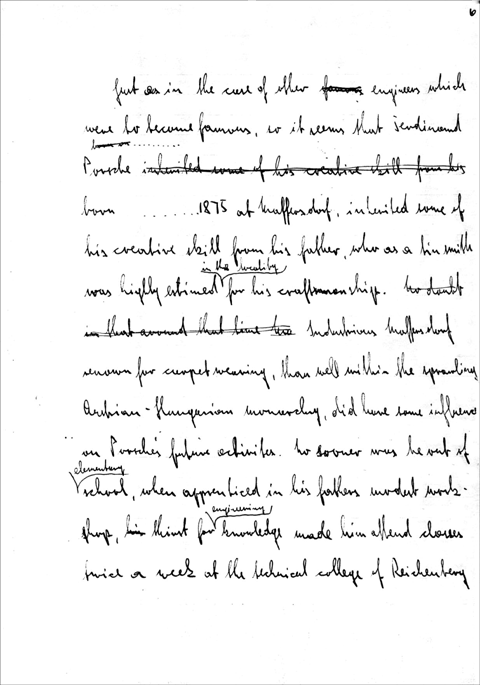 6
Just as in the case of other famous engineers which
were to become famous, so it seems that Ferdinand
born
Porsche inherited some of his creative skill from his
born ........1875 at Maffersdorf, inherited some of
his creative skill from his father, who as a tin smith
in the locality
was highly estimed for his craftsmanship. No doubt
in that around that time was Industrious Maffersdorf
renown for carpet weaving, than well within the sprawling
Austrian-Hungarian monarchy, did have some influence
on Porsche's future activites. No sooner was he out of
elementary
school, when apprenticed in his fathers modest work-
engineering
shop, his thirst for knowledge made him attend classes
twice a week at the technical college of Reichenberg